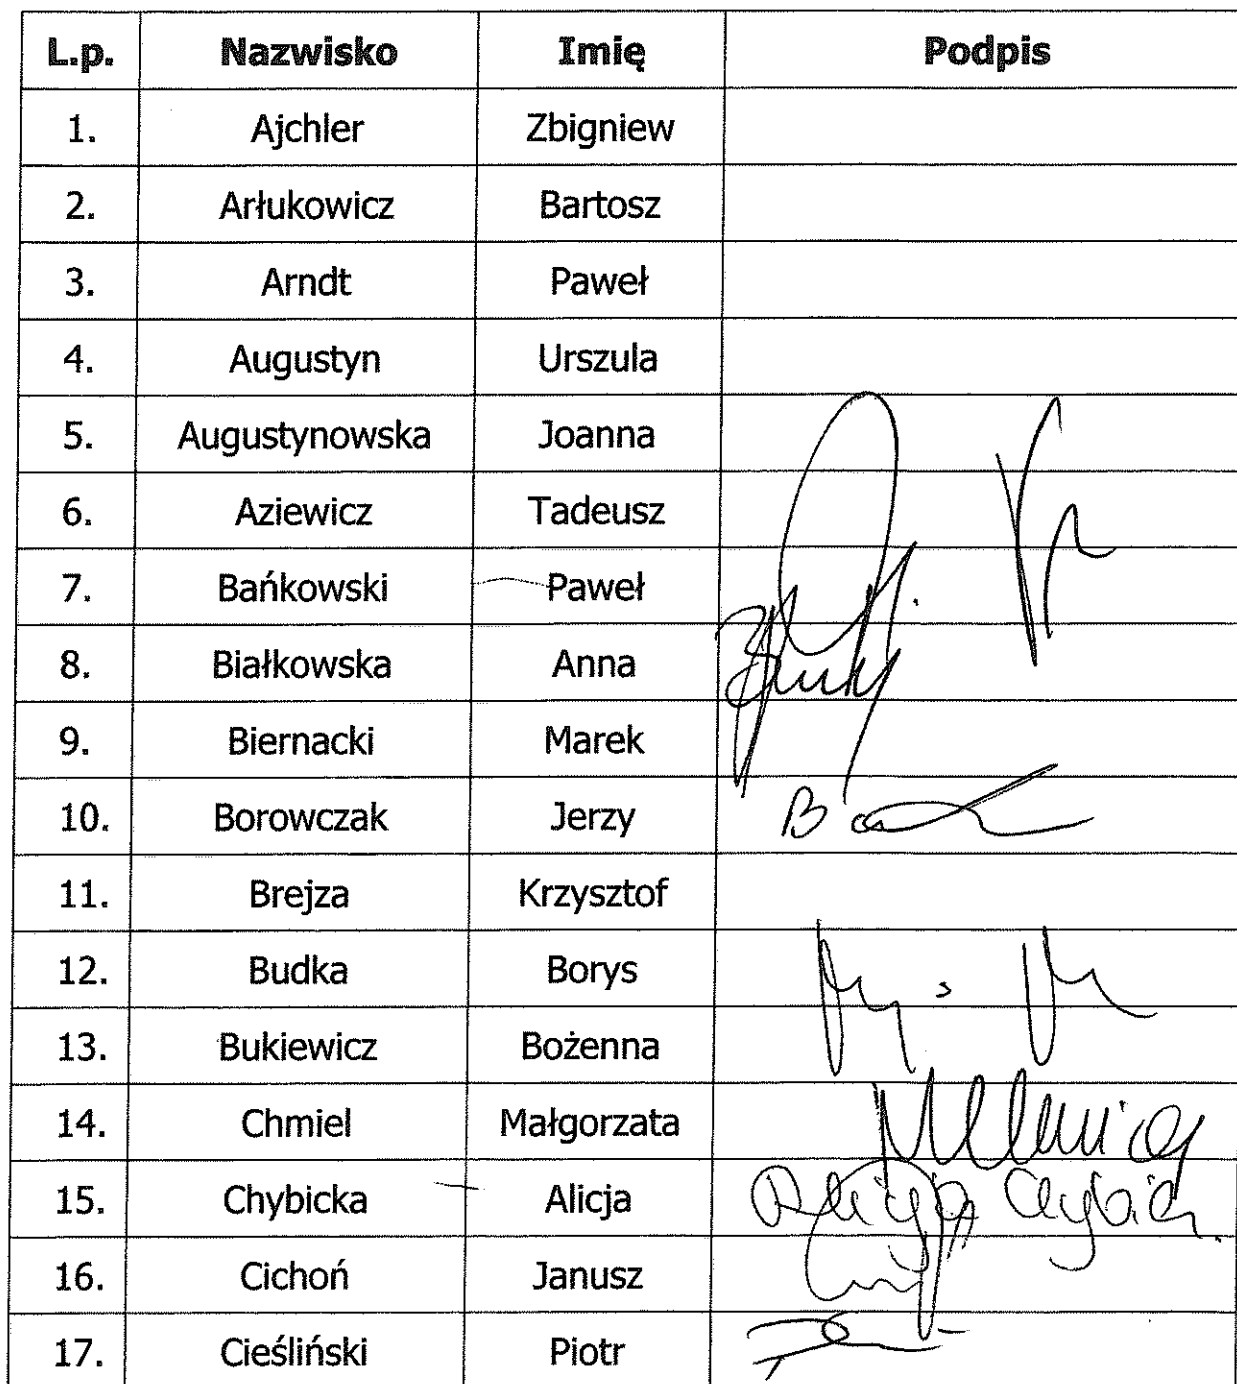 L.p. Nazwisko Imię Podpis
1. Ajchler Zbigniew
2. Arłukowicz Bartosz
3. Arndt Paweł
4. Augustyn Urszula
5. Augustynowska Joanna
6. Aziewicz Tadeusz
7. Bańkowski Paweł
8. Białkowska Anna
9. Biernacki Marek
10. Borowczak Jerzy
11. Brejza Krzysztof
12. Budka Borys
13. Bukiewicz Bożenna
14. Chmiel Małgorzata
15. Chybicka Alicja Alicja Chybicka
16. Cichoń Janusz
17. Cieśliński Piotr